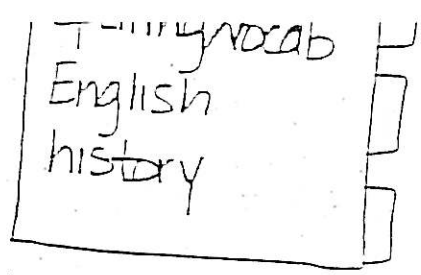 vocab
English
history